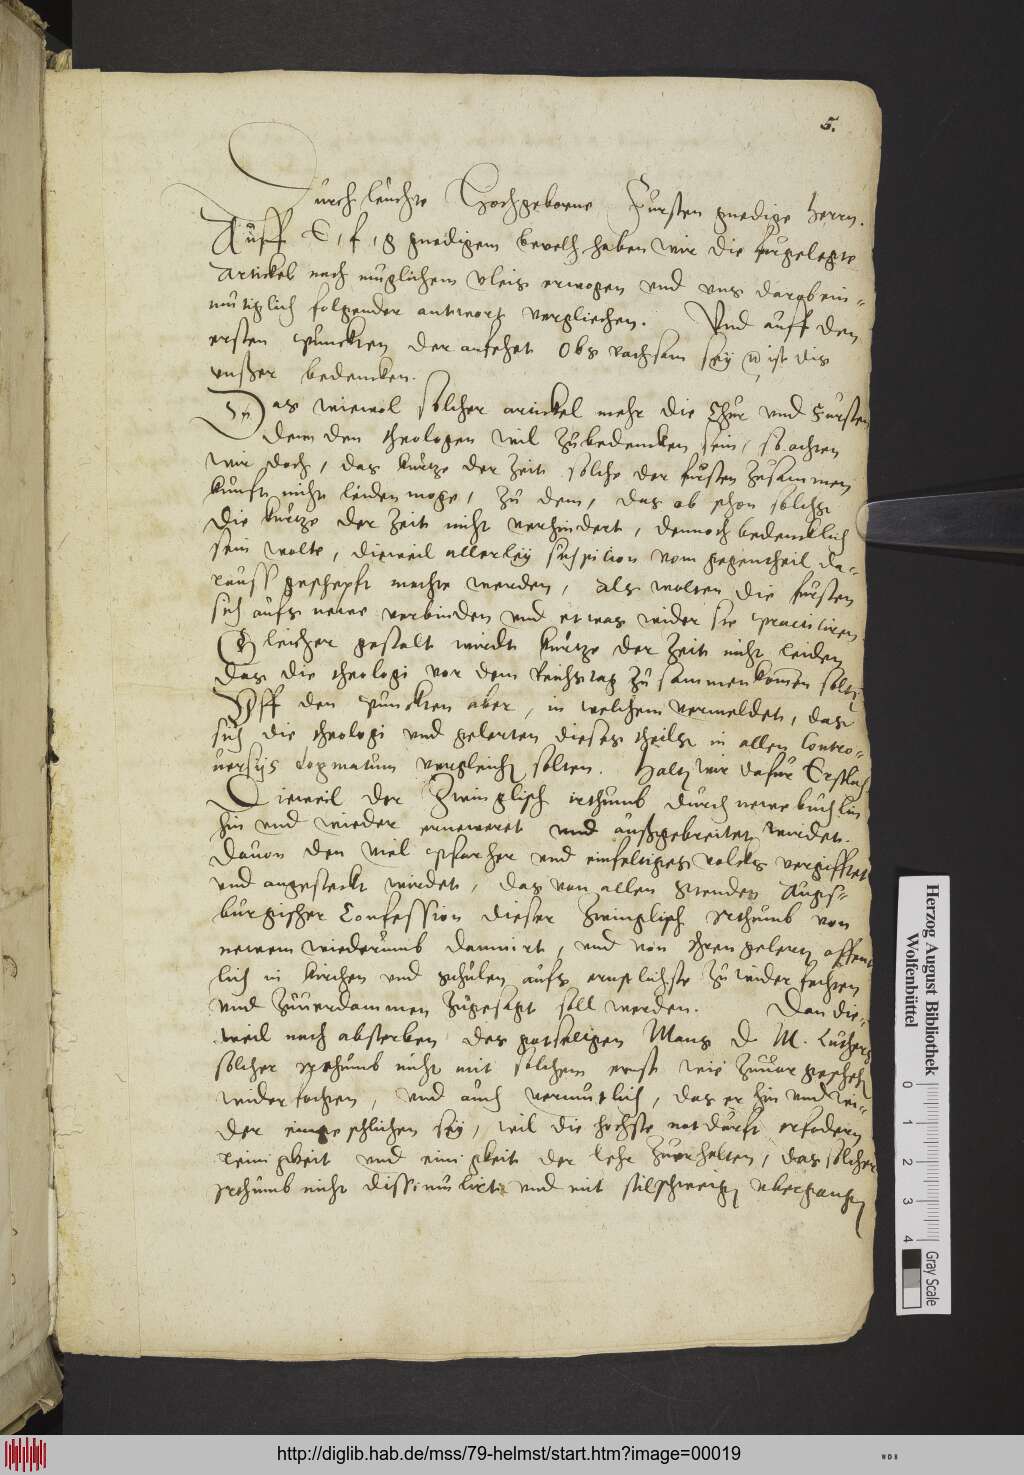 5.
Durchleuchte Hochgeborne Fursten gnedige Herrn.
Auff E, f, g gnedigen bevelh haben wir die furgelegte
Artickel nach muglichem vleis erwogen vnd vns darob ein-
mutiglich folgender antwort vergliechen. Vnd auff den
ersten Punckten der anfehet Obs rathsam sey ist dis
vnßer bedencken.
Das wiewol solcher artickel mehr die Chur vnd Fursten
denn den theologen wil zubedencken sein, so achten
wir doch, das kurtze der Zeit solche der fursten zusammen
kunfft nicht leiden moge, zu dem, das ob schon solchs
die kurtze der Zeit nicht verhindert, dennoch bedencklich
sein wolte, dieweil allerley suspition vom gegentheil da-
rauss geschepft mochte werden, als wolten die fursten
sich aufs newe verbinden vnd etwas wider sie practiciren
Gleicher gestalt wirdt kurtze der Zeit nicht leiden
das die theologi vor dem Reichstag zusammenkomen solten
Vff den Puncten aber, in welchem vermeldet, das
sich die theologi vnd gelerten dieses theils in allen Contro-
uersijs dogmatum vergleichen solten. Halten wir dafur Erstlich
Dieweil der Zwinglisch irthumb durch newe buchlin
hin vnd wieder ernewert vnd außgebreitet wirdet.
Dauon den viel Pfarher vnd einfeltiges volcks vergifftet
vnd angesteckt wirdet, das von allen Stenden Augs-
burgischer Confession dieser Zwinglisch Irthumb von
newem wiederumb damnirt, vnd von ihren gelerten offent-
lich in kirchen vnd schulen aufs ernstlichste zuwider fechten
vnd zuuerdammen zugesagt soll werden. Dan die-
weil nach absterben des gotseligen Mans D. M. Luthers
solcher Irthumb nicht mit solchem ernst wie zuuor geschehen
widerfochten, vnd auch vermutlich, das er hin vnd wi-
der eingeschlichen sey, wil die hochste notdurfft erfodern
reinigkeit vnd einigkeit der lehr zuerhalten, das solcher
Irthumb nicht dissimulirt vnd mit stilschweigen vbergangen
Herzog August Bibliothek
Wolfenbüttel
0 1 2 3 4
Gray Scale
http://diglib.hab.de/mss/79-helmst/start.htm?image=00019
WDB